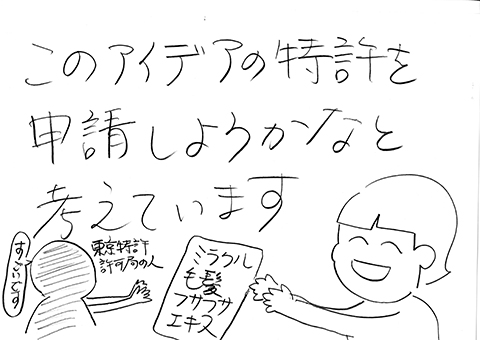 このアイデアの特許を
申請しようかなと
考えています
すごいです
東京特許
許可局の人
ミラクル
毛髪
フサフサ
エキス